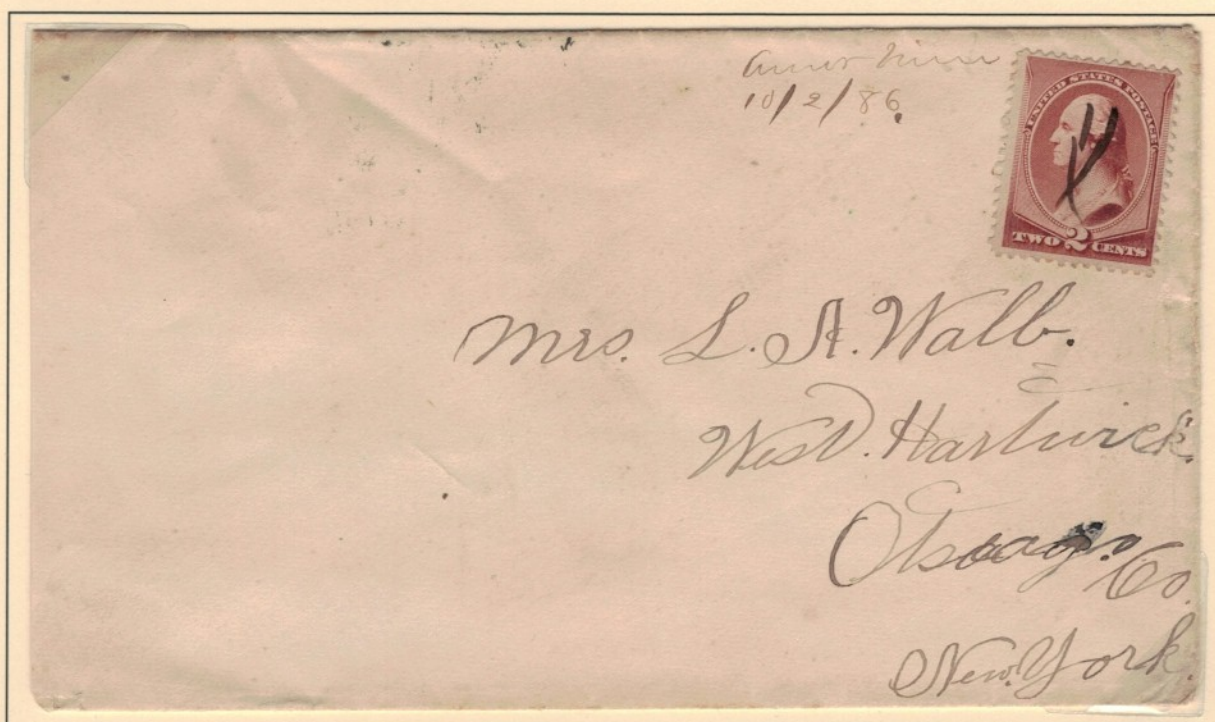 10/2/86.
UNITED STATES POSTAGE
TWO 2 CENTS
Mrs. L. A. Walb.
West. Hartwick.
Co.
New. York.